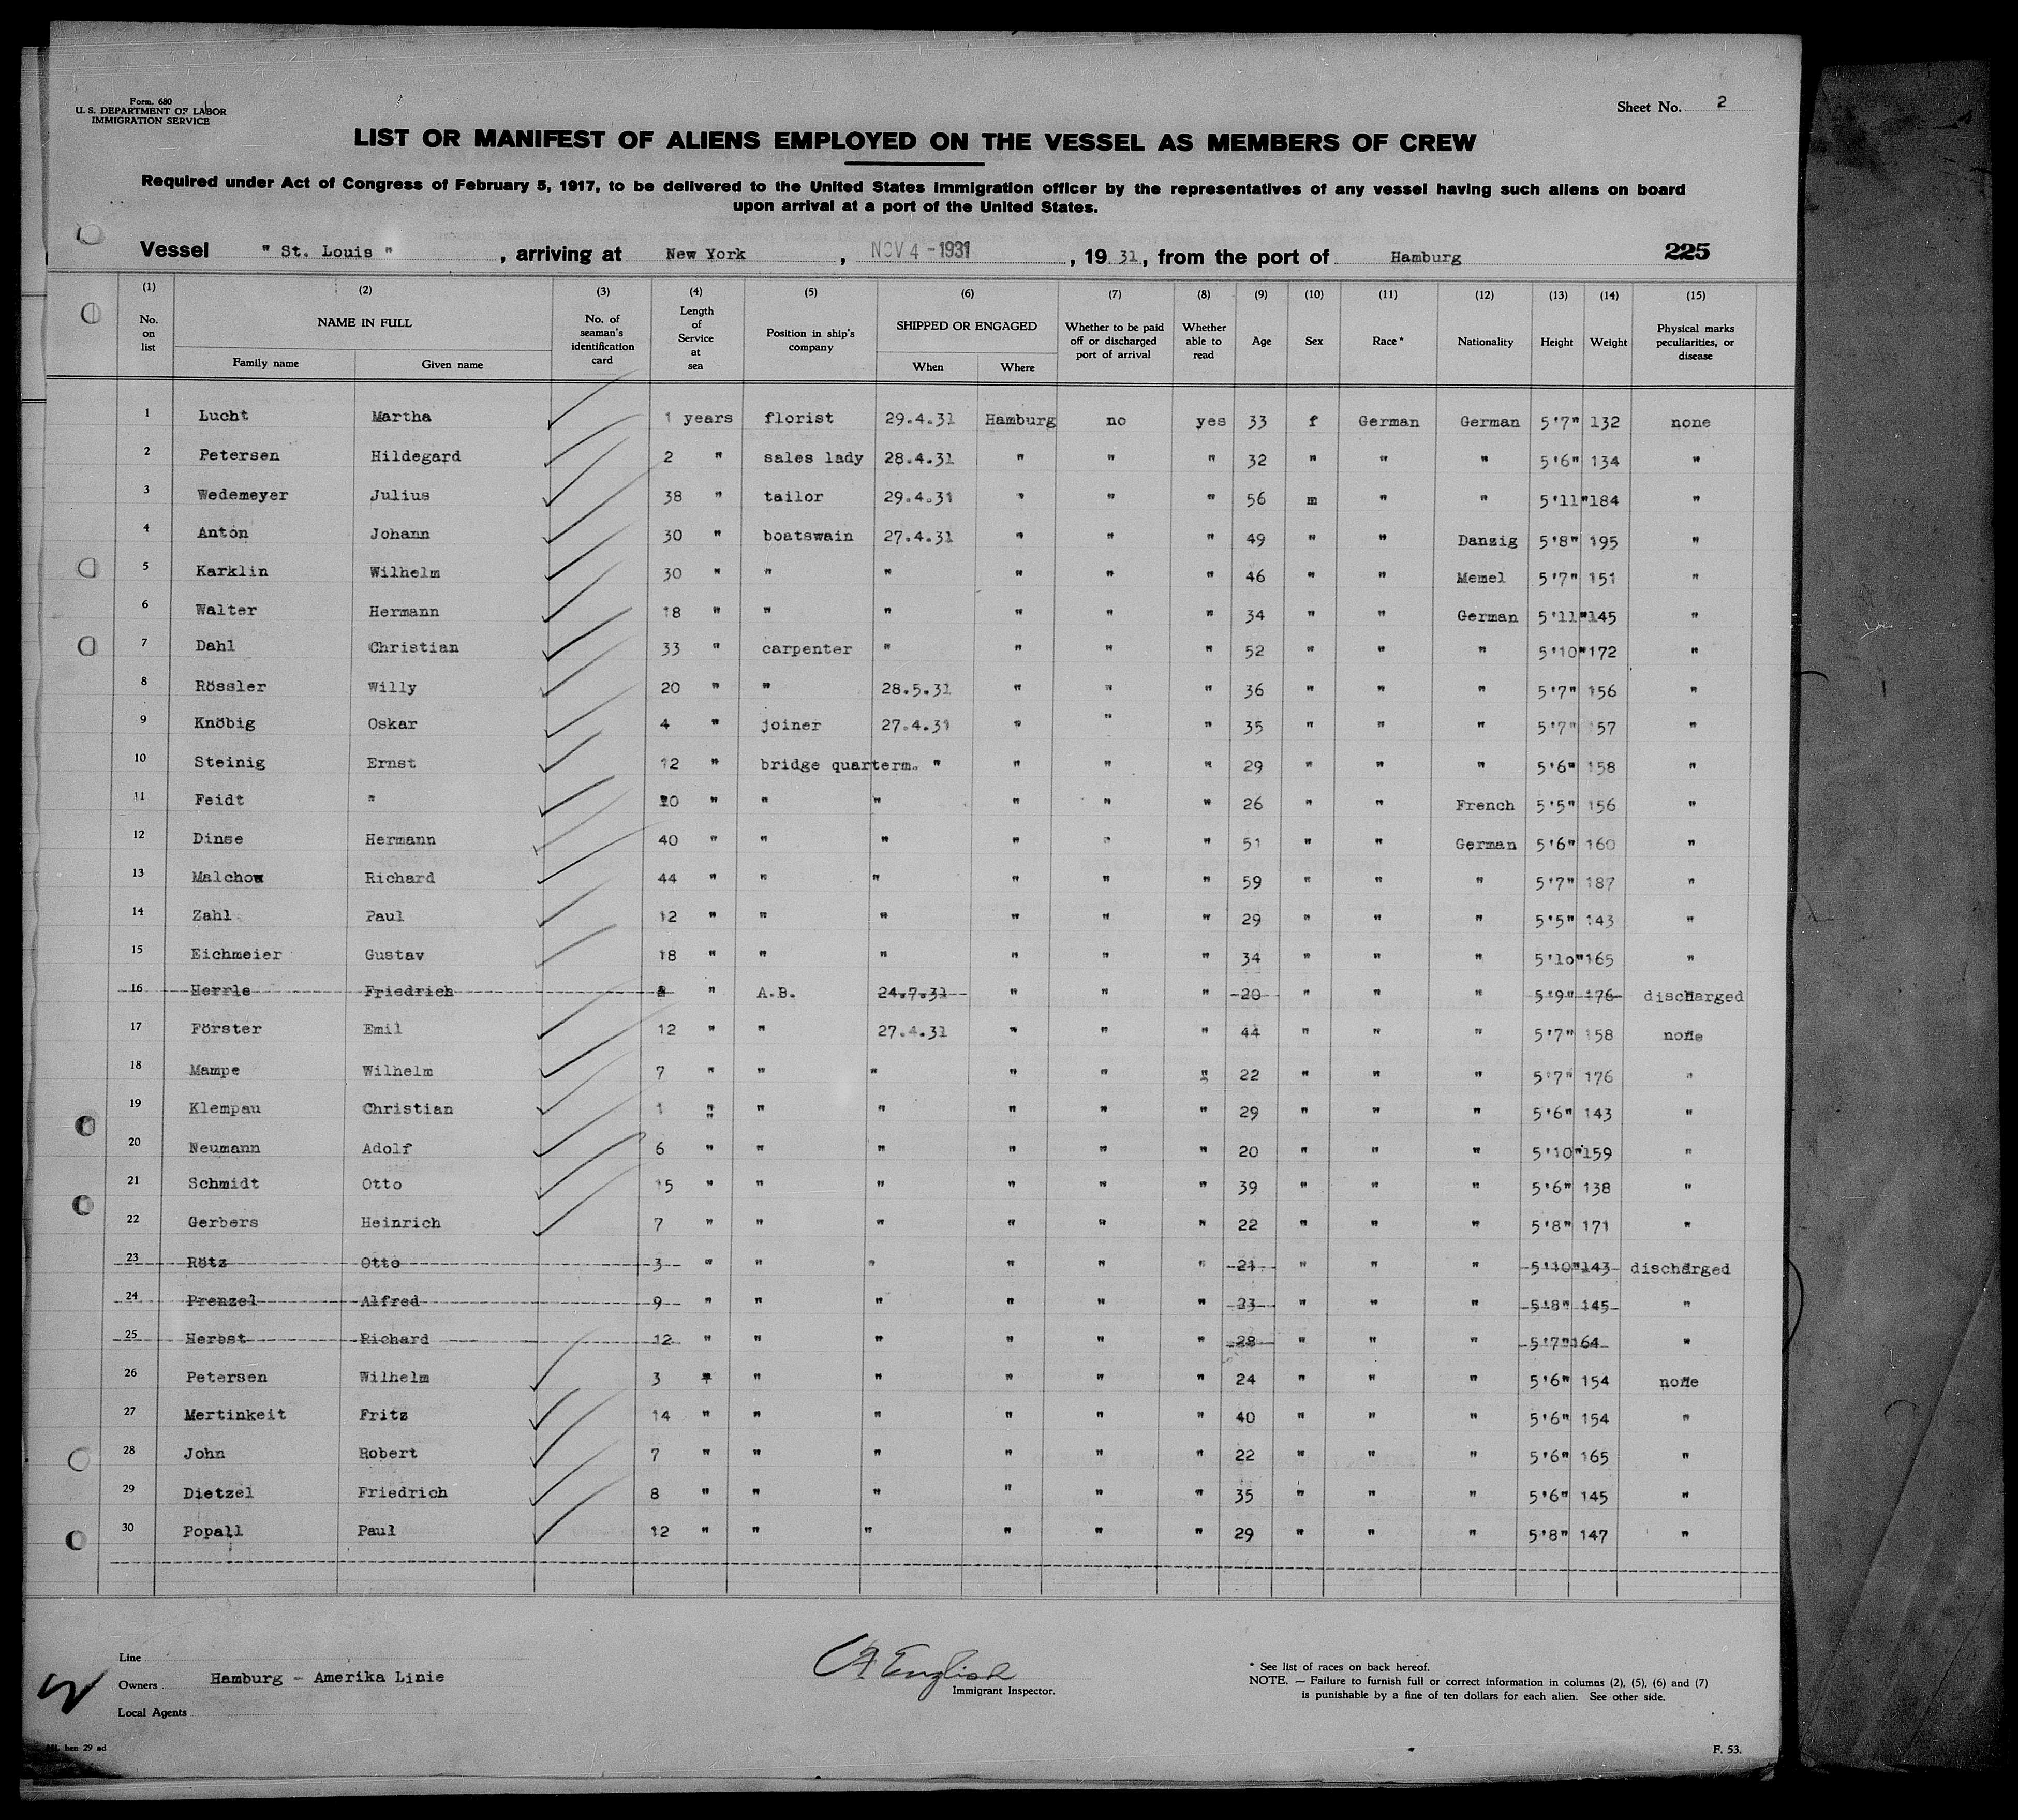 Form. 680
U. S. DEPARTMENT OF LABOR
IMMIGRATION SERVICE
Sheet No. 2
LIST OR MANIFEST OF ALIENS EMPLOYED ON THE VESSEL AS MEMBERS OF CREW
Required under Act of Congress of February 5, 1917, to be delivered to the United States immigration officer by the representatives of any vessel having such aliens on board
upon arrival at a port of the United States.
Vessel " St. Louis " , arriving at New York , NOV 4 - 1931 , 19 31, from the port of Hamburg 225
(1) (2) (3) (4) (5) (6) (7) (8) (9) (10) (11) (12) (13) (14) (15)
No. on list NAME IN FULL Family name Given name No. of seaman's identification card Length of Service at sea Position in ship's company SHIPPED OR ENGAGED When Where Whether to be paid off or discharged port of arrival Whether able to read Age Sex Race* Nationality Height Weight Physical marks peculiarities, or disease
1 Lucht Martha 1 years florist 29.4.31 Hamburg no yes 33 f German German 5'7" 132 none
2 Petersen Hildegard 2 " sales lady 28.4.31 " " " 32 " " " 5'6" 134 "
3 Wedemeyer Julius 38 " tailor 29.4.31 " " " 56 m " " 5'11" 184 "
4 Anton Johann 30 " boatswain 27.4.31 " " " 49 " " Danzig 5'8" 195 "
5 Karklin Wilhelm 30 " " " " " " 46 " " Memel 5'7" 151 "
6 Walter Hermann 18 " " " " " " 34 " " German 5'11" 145 "
7 Dahl Christian 33 " carpenter " " " " 52 " " " 5'10" 172 "
8 Rössler Willy 20 " " 28.5.31 " " " 36 " " " 5'7" 156 "
9 Knöbig Oskar 4 " joiner 27.4.31 " " " 35 " " " 5'7" 157 "
10 Steinig Ernst 12 " bridge quarterm. " " " " 29 " " " 5'6" 158 "
11 Feidt " 10 " " " " " " 26 " " French 5'5" 156 "
12 Dinse Hermann 40 " " " " " " 51 " " German 5'6" 160 "
13 Malchow Richard 44 " " " " " " 59 " " " 5'7" 187 "
14 Zahl Paul 12 " " " " " " 29 " " " 5'5" 143 "
15 Eichmeier Gustav 18 " " " " " " 34 " " " 5'10" 165 "
16 Herrle Friedrich " A.B. 24.7.31 " " " 20 " " " 5'9" 176 discharged
17 Förster Emil 12 " " 27.4.31 " " " 44 " " " 5'7" 158 none
18 Mampe Wilhelm 7 " " " " " " 22 " " " 5'7" 176 "
19 Klempau Christian 1 " " " " " " 29 " " " 5'6" 143 "
20 Neumann Adolf 6 " " " " " " 20 " " " 5'10" 159 "
21 Schmidt Otto 15 " " " " " " 39 " " " 5'6" 138 "
22 Gerbers Heinrich 7 " " " " " " 22 " " " 5'8" 171 "
23 Rötz Otto 3 " " " " " " 21 " " " 5'10" 143 discharged
24 Prenzel Alfred 9 " " " " " " 23 " " " 5'8" 145 "
25 Herbst Richard 12 " " " " " " 28 " " " 5'7" 164 "
26 Petersen Wilhelm 3 " " " " " " 24 " " " 5'6" 154 none
27 Mertinkeit Fritz 14 " " " " " " 40 " " " 5'6" 154 "
28 John Robert 7 " " " " " " 22 " " " 5'6" 165 "
29 Dietzel Friedrich 8 " " " " " " 35 " " " 5'6" 145 "
30 Popall Paul 12 " " " " " " 29 " " " 5'8" 147 "
Line
Owners Hamburg - Amerika Linie
Local Agents
English
Immigrant Inspector.
* See list of races on back hereof.
NOTE. — Failure to furnish full or correct information in columns (2), (5), (6) and (7)
is punishable by a fine of ten dollars for each alien. See other side.
29 ad
F. 53.